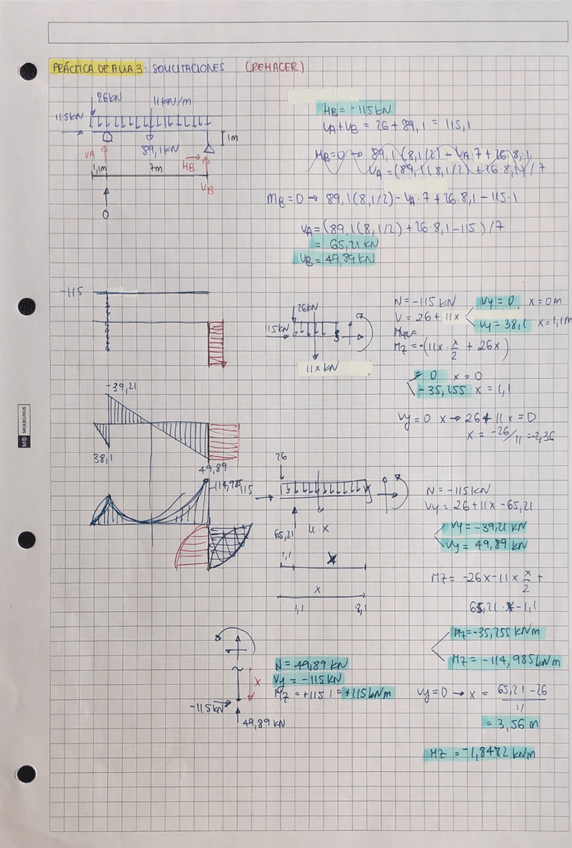 PRÁCTICA DE AULA 3. SOLICITACIONES (REHACER)
26KN
11KN/m
115KN
89,1KN
1m
VA
HB
VB
1,1m
7m
HB = -115KN
VA+VB = 26+89,1 = 115,1
MB=0 → 89,1(8,1/2) - VA·7 + 26·8,1
VA = (89,1(8,1/2) + 26·8,1)/7
MB=0 → 89,1(8,1/2) - VA·7 + 26·8,1 - 115·1
VA = (89,1(8,1/2) + 26·8,1 - 115)/7
= 65,21 KN
VB = 49,89 KN
-115
26KN
115KN
11xKN
N = -115 KN
V = 26+11x
Vy = 0, x = 0m
Vy = 38,1 x = 1,1m
MZ = -(11x·x/2 + 26x)
= 0 x = 0
-35,255 x = 1,1
Vy=0 x → 26+11x = 0
x = -26/11 = -2,36
-39,21
38,1
49,89
26
115
65,21
11·x
1,1
x
x
1,1
8,1
N = -115KN
Vy = 26+11x - 65,21
Vy = -39,21 KN
Vy = 49,89 KN
MZ = -26x - 11x x/2 +
65,21·x - 1,1
MZ = -35,255 KNm
MZ = -114,985 KNm
Vy=0 → x = 65,21 - 26 / 11
= 3,56 m
MZ = -1,8482 KNm
N = -49,89 KN
Vy = -115KN
MZ = +115·1 = +115 KNm
x
-115KN
49,89 KN
MB
MIQUELRIUS